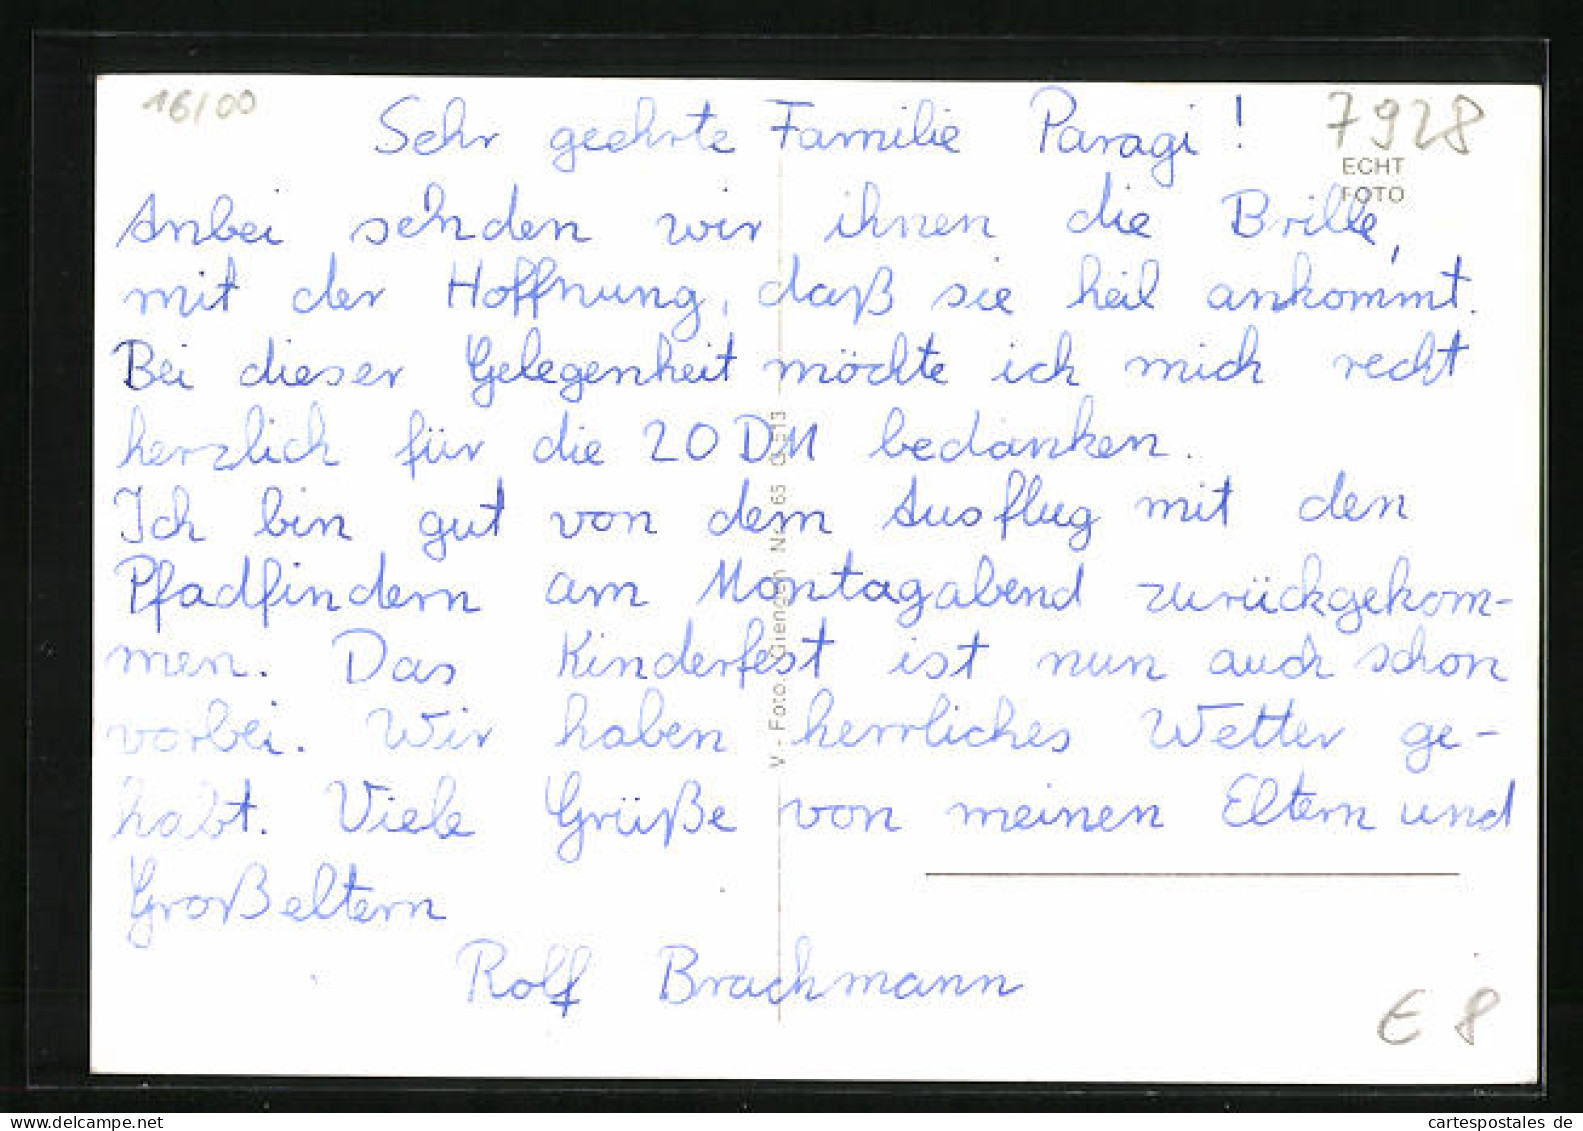 16/00
7928
ECHT
FOTO
Sehr geehrte Familie Paragi!
Anbei sehnden wir ihnen die Brille,
mit der Hoffnung, daß sie heil ankommt.
Bei dieser Gelegenheit möchte ich mich recht
herzlich für die 20 DM bedanken.
Ich bin gut von dem Ausflug mit den
Pfadfindern am Montagabend zurückgekom-
men. Das Kinderfest ist nun auch schon
vorbei. Wir haben herrliches Wetter ge-
habt. Viele Grüße von meinen Eltern und
Großeltern
Rolf Brachmann
V - Foto, Giengen
€ 8
cartespostales de